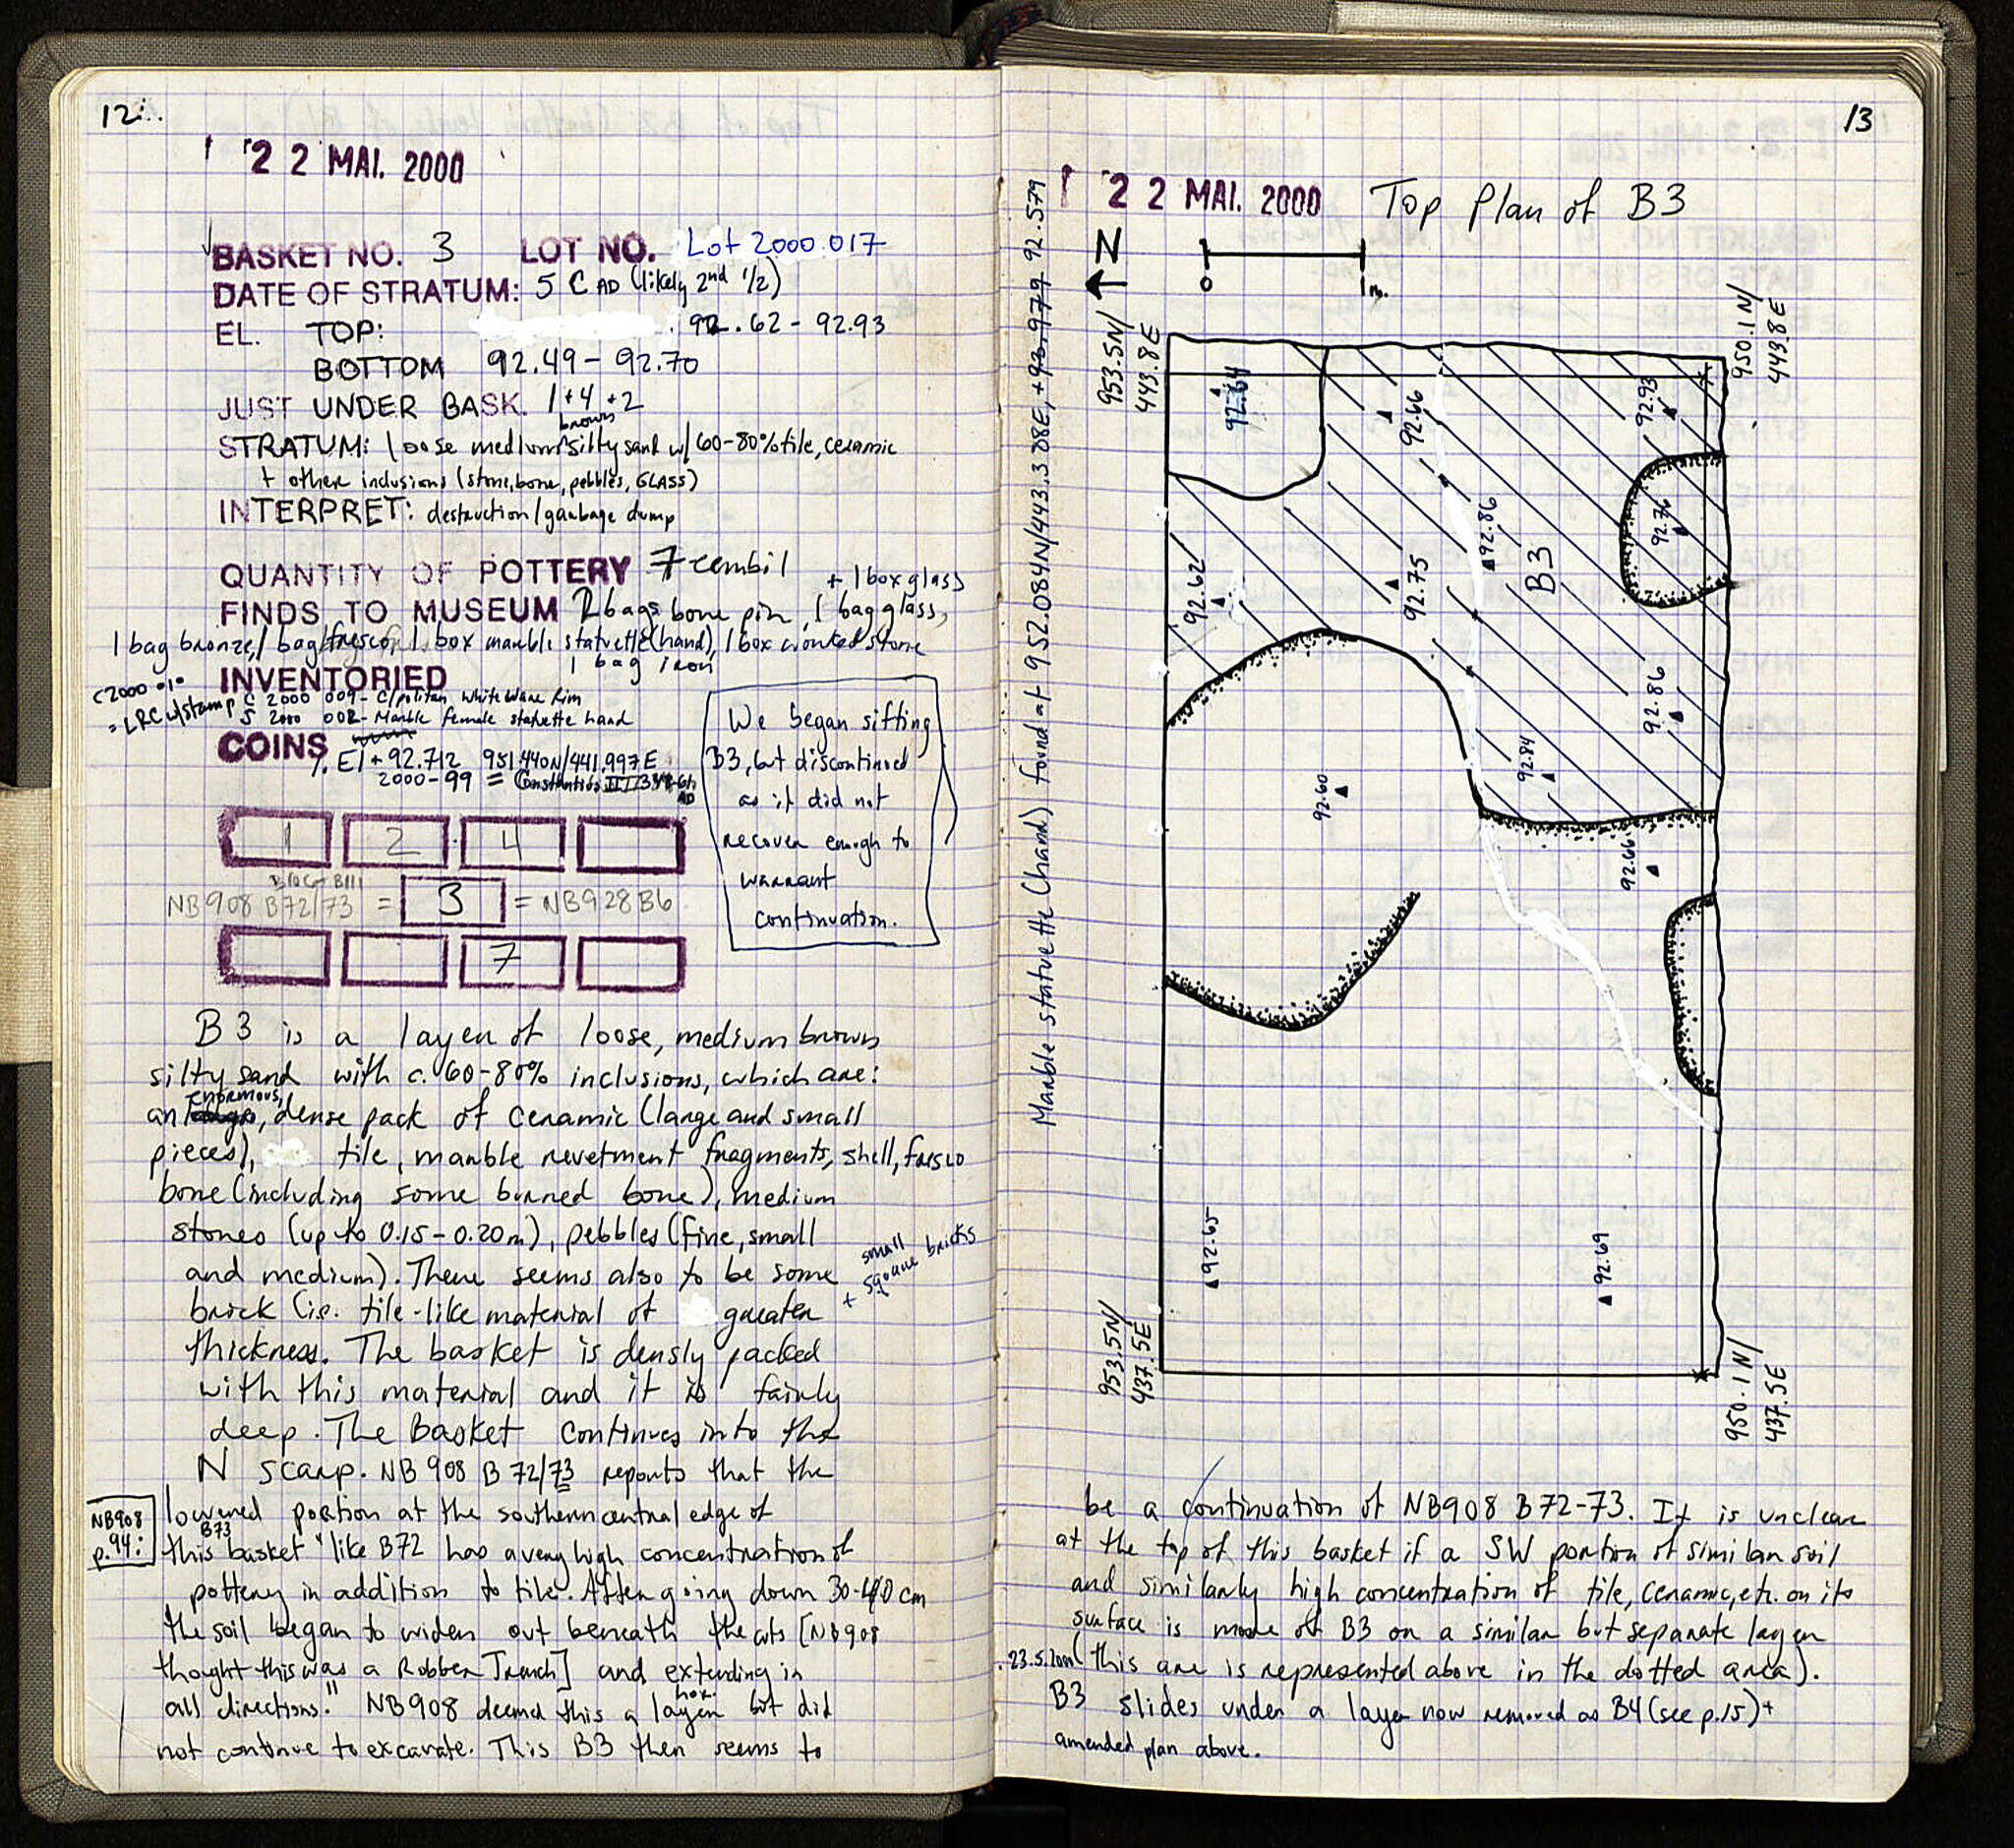 12
22 MAI. 2000
BASKET NO. 3 LOT NO. Lot 2000.017
DATE OF STRATUM: 5 C AD (likely 2nd 1/2)
EL. TOP: 92.62 - 92.93
BOTTOM 92.49 - 92.70
JUST UNDER BASK. 1+4+2
brown
STRATUM: loose medium silty sand w/ 60-80% tile, ceramic
+ other inclusions (stone, bone, pebbles, GLASS)
INTERPRET: destruction/garbage dump
QUANTITY OF POTTERY 7 zembil
+ 1 box glass
FINDS TO MUSEUM 2 bags bone pin, 1 bag glass,
1 bag bronze, 1 bag fresco, 1 box marble statuette (hand), 1 box worked stone
1 bag iron
INVENTORIED
C 2000 009 - C/politan White Ware Rim
= LRC w/stamp
S 2000 002 - Marble female statuette hand
COINS
1. El + 92.712 951.440N/441.997E
2000-99 = Constantius II
AD
We began sifting
B3, but discontinued
as it did not
recover enough to
warrant
continuation.
1 2 4
B10C-B111
NB908 B72/73 = 3 = NB928 B6
7
B3 is a layer of loose, medium brown
silty sand with c. 60-80% inclusions, which are:
enormous,
an dense pack of ceramic (large and small
pieces), tile, marble revetment fragments, shell, fresco
bone (including some burned bone), medium
stones (up to 0.15-0.20m), pebbles (fine, small
and medium). There seems also to be some
+ small square bricks
brick (i.e. tile-like material of greater
thickness. The basket is densly packed
with this material and it is fairly
deep. The Basket continues into the
N scarp. NB 908 B 72/73 reports that the
lowered portion at the southern central edge of
NB908
p.94:
B73
this basket "like B72 has a very high concentration of
pottery in addition to tile. After going down 30-40 cm
the soil began to widen out beneath the cuts [NB908
thought this was a Robber Trench] and extending in
all directions." NB908 deemed this a layer but did
hor.
not continue to excavate. This B3 then seems to
13
22 MAI. 2000 Top Plan of B3
N
0 1m.
Marble statuette (hand) found at 952.084N/443.308E, +93.979 92.579
953.5N/
443.8E
950.1N/
443.8E
92.64
92.66
92.93
92.76
92.86
92.62
92.75
B3
92.86
92.84
92.60
92.66
92.65
92.69
953.5N/
437.5E
950.1N/
437.5E
be a continuation of NB908 B72-73. It is unclear
at the top of this basket if a SW portion of similar soil
and similarly high concentration of tile, ceramic, etc. on its
surface is more of B3 or a similar but separate layer
23.5.2000 (this are is represented above in the dotted area).
B3 slides under a layer now removed as B4 (see p.15) +
amended plan above.